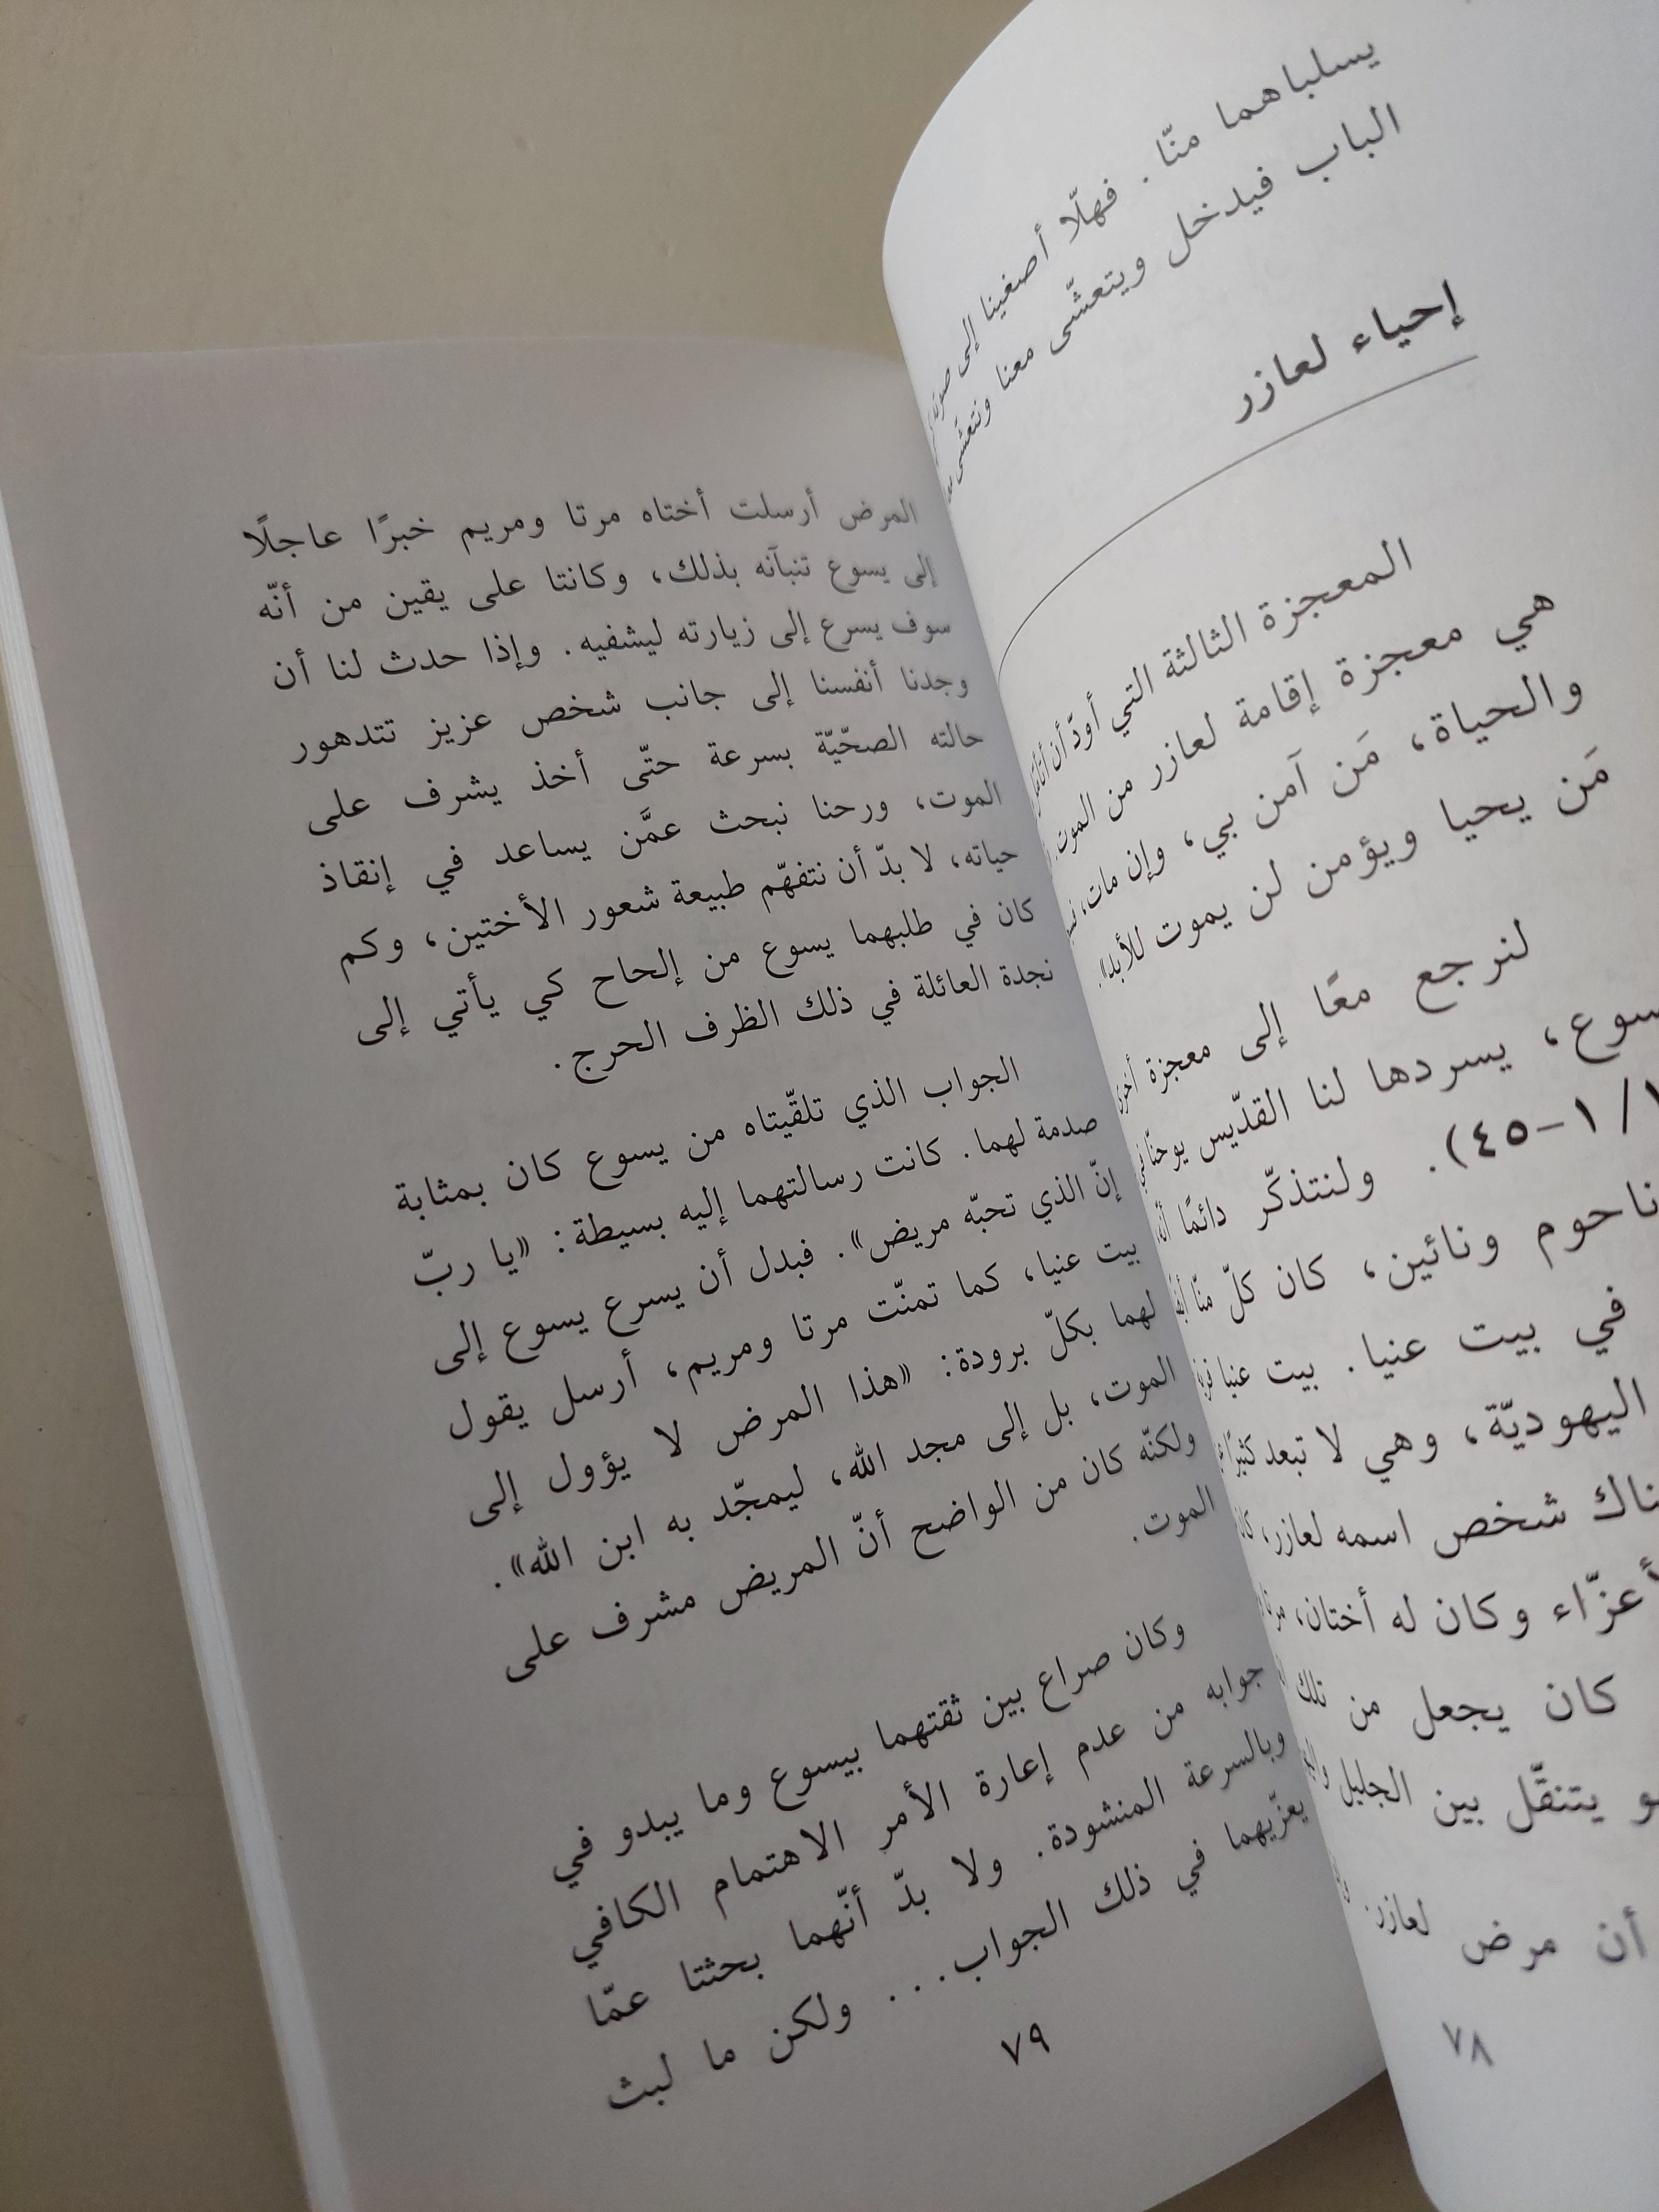 يسلباهما منّا. فهلّا أصغينا إلى
الباب فيدخل ويتعشّى معنا ونتعشّى
إحياء لعازر
المعجزة الثالثة التي أودّ أن
هي معجزة إقامة لعازر من الموت
والحياة، مَن آمن بي، وإن مات،
مَن يحيا ويؤمن لن يموت للأبد».
لنرجع معًا إلى معجزة أخرى
يسردها لنا القدّيس يوحنّا
/١-٤٥). ولنتذكّر دائمًا
ونائين، كان كلّ منّا
في بيت عنيا. بيت عنيا
اليهوديّة، وهي لا تبعد كثيرًا
شخص اسمه لعازر،
وكان له أختان،
كان يجعل من تلك
يتنقّل بين الجليل
أن مرض لعازر.
٧٨
المرض أرسلت أختاه مرتا ومريم خبرًا عاجلًا
إلى يسوع تنبآنه بذلك، وكانتا على يقين من أنّه
سوف يسرع إلى زيارته ليشفيه. وإذا حدث لنا أن
وجدنا أنفسنا إلى جانب شخص عزيز تتدهور
حالته الصحّيّة بسرعة حتّى أخذ يشرف على
الموت، ورحنا نبحث عمَّن يساعد في إنقاذ
حياته، لا بدّ أن نتفهّم طبيعة شعور الأختين، وكم
كان في طلبهما يسوع من إلحاح كي يأتي إلى
نجدة العائلة في ذلك الظرف الحرج.
الجواب الذي تلقّيتاه من يسوع كان بمثابة
صدمة لهما. كانت رسالتهما إليه بسيطة: «يا ربّ
إنّ الذي تحبّه مريض». فبدل أن يسرع يسوع إلى
بيت عنيا، كما تمنّت مرتا ومريم، أرسل يقول
لهما بكلّ برودة: «هذا المرض لا يؤول إلى
الموت، بل إلى مجد الله، ليمجّد به ابن الله».
ولكنّه كان من الواضح أنّ المريض مشرف على
الموت.
وكان صراع بين ثقتهما بيسوع وما يبدو في
جوابه من عدم إعارة الأمر الاهتمام الكافي
وبالسرعة المنشودة. ولا بدّ أنّهما بحثتا عمّا
يعزّيهما في ذلك الجواب... ولكن ما لبث
٧٩